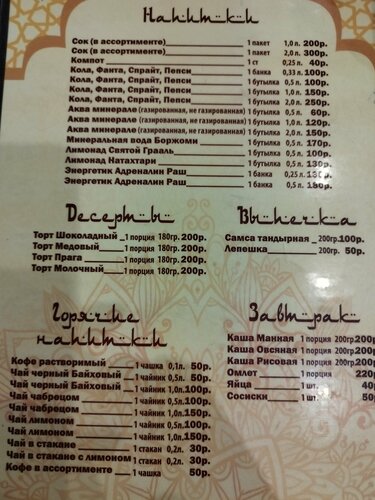 Напитки
Сок (в ассортименте) 1 пакет 1,0 л. 200р.
Сок (в ассортименте) 1 пакет 2,0 л. 300р.
Компот 1 ст 0,25 л. 40р.
Кола, Фанта, Спрайт, Пепси 1 банка 0,33 л. 100р.
Кола, Фанта, Спрайт, Пепси 1 бутылка 0,5 л. 100р.
Кола, Фанта, Спрайт, Пепси 1 бутылка 1,0л. 150р.
Кола, Фанта, Спрайт, Пепси 1 бутылка 2,0л. 250р.
Аква минерале (газированная, не газированная) 1 бутылка 0,5 л. 60р.
Аква минерале (газированная, не газированная) 1 бутылка 1,0л. 120р.
Аква минерале (газированная, не газированная) 1 бутылка 2,0л. 150р.
Минеральная вода Боржоми 1 бутылка 0,5 л. 170р.
Лимонад Святой Грааль 1 бутылка 0,5л. 100р.
Лимонад Натахтари 1 бутылка 0,5 л. 130р.
Энергетик Адреналин Раш 1 банка 0,25 л. 130р.
Энергетик Адреналин Раш 1 банка 0,5 л. 180р.
Десерты
Торт Шоколадный 1 порция 180гр. 200р.
Торт Медовый 1 порция 180гр. 200р.
Торт Прага 1 порция 180гр. 200р.
Торт Молочный 1 порция 180гр. 200р.
Выпечка
Самса тандырная 200гр. 100р.
Лепешка 200гр. 50р.
Горячие
напитки
Кофе растворимый 1 чашка 0,1л. 50р.
Чай черный Байховый 1 чайник 0,5л. 50р.
Чай черный Байховый 1 чайник 1,0л. 100р.
Чай чабрецом 1 чайник 0,5л. 100р.
Чай чабрецом 1 чайник 1,0л. 150р.
Чай лимоном 1 чайник 0,5л. 100р.
Чай лимоном 1 чайник 1,0л. 150р.
Чай в стакане 1 стакан 0,2л. 30р.
Чай в стакане с лимоном 1 стакан 0,2л. 30р.
Кофе в ассортименте 1 чашка 50р.
Завтрак
Каша Манная 1 порция 200гр. 200
Каша Овсяная 1 порция 200гр. 200р
Каша Рисовая 1 порция 200гр. 200р
Омлет 220
Яйца 1 шт. 40
Сосиски 1 шт. 50